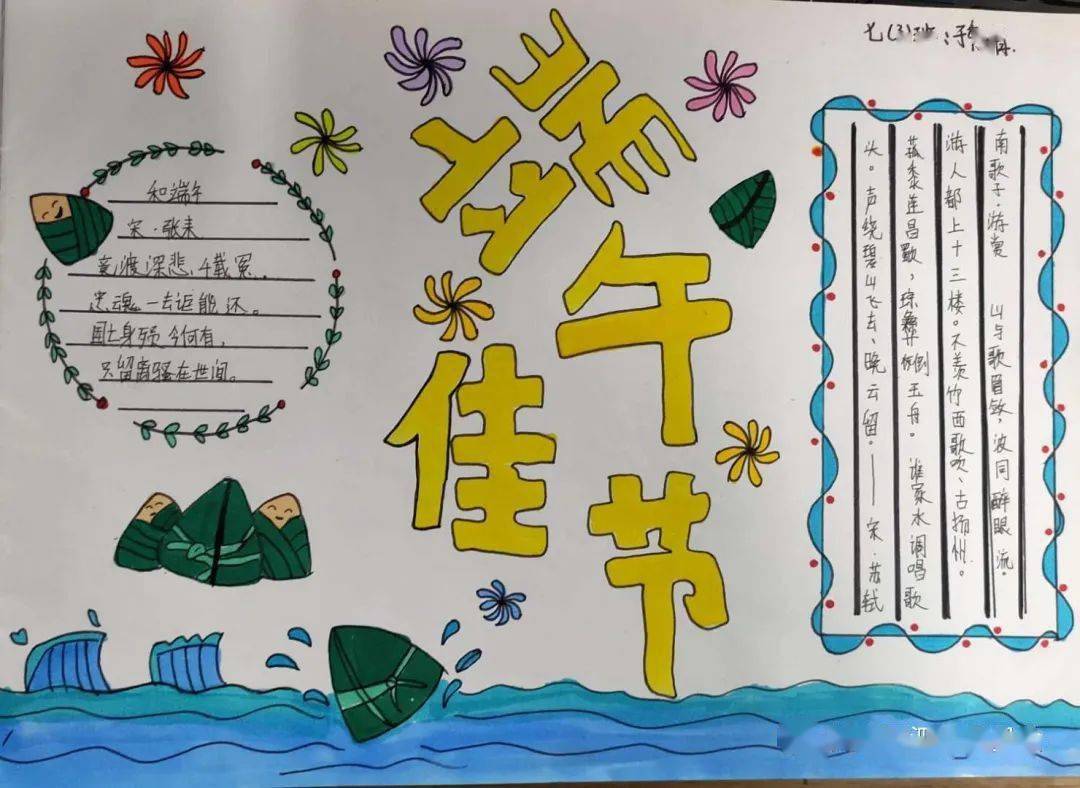 七(3)班
端午佳节
和端午
宋·张耒
竞渡深悲千载冤,
忠魂一去讵能还。
国亡身殒今何有,
只留离骚在世间。
南歌子·游赏 山与歌眉敛,波同醉眼流。
游人都上十三楼。不羡竹西歌吹、古扬州。
菰黍连昌歜,琼彝倒玉舟。谁家水调唱歌
头。声绕碧山飞去、晚云留。——宋·苏轼